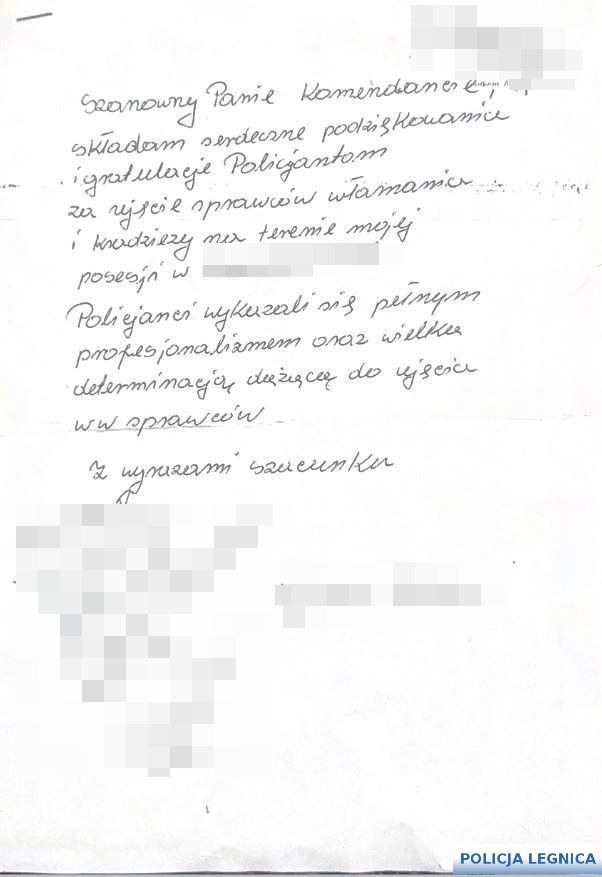 Szanowny Panie Komendancie,
składam serdeczne podziękowania
i gratulacje Policjantom
za ujęcie sprawców włamania
i kradzieży na terenie mojej
posesji w
Policjanci wykazali się pełnym
profesjonalizmem oraz wielką
determinacją dążącą do ujęcia
w w sprawców
Z wyrazami szacunku
POLICJA LEGNICA